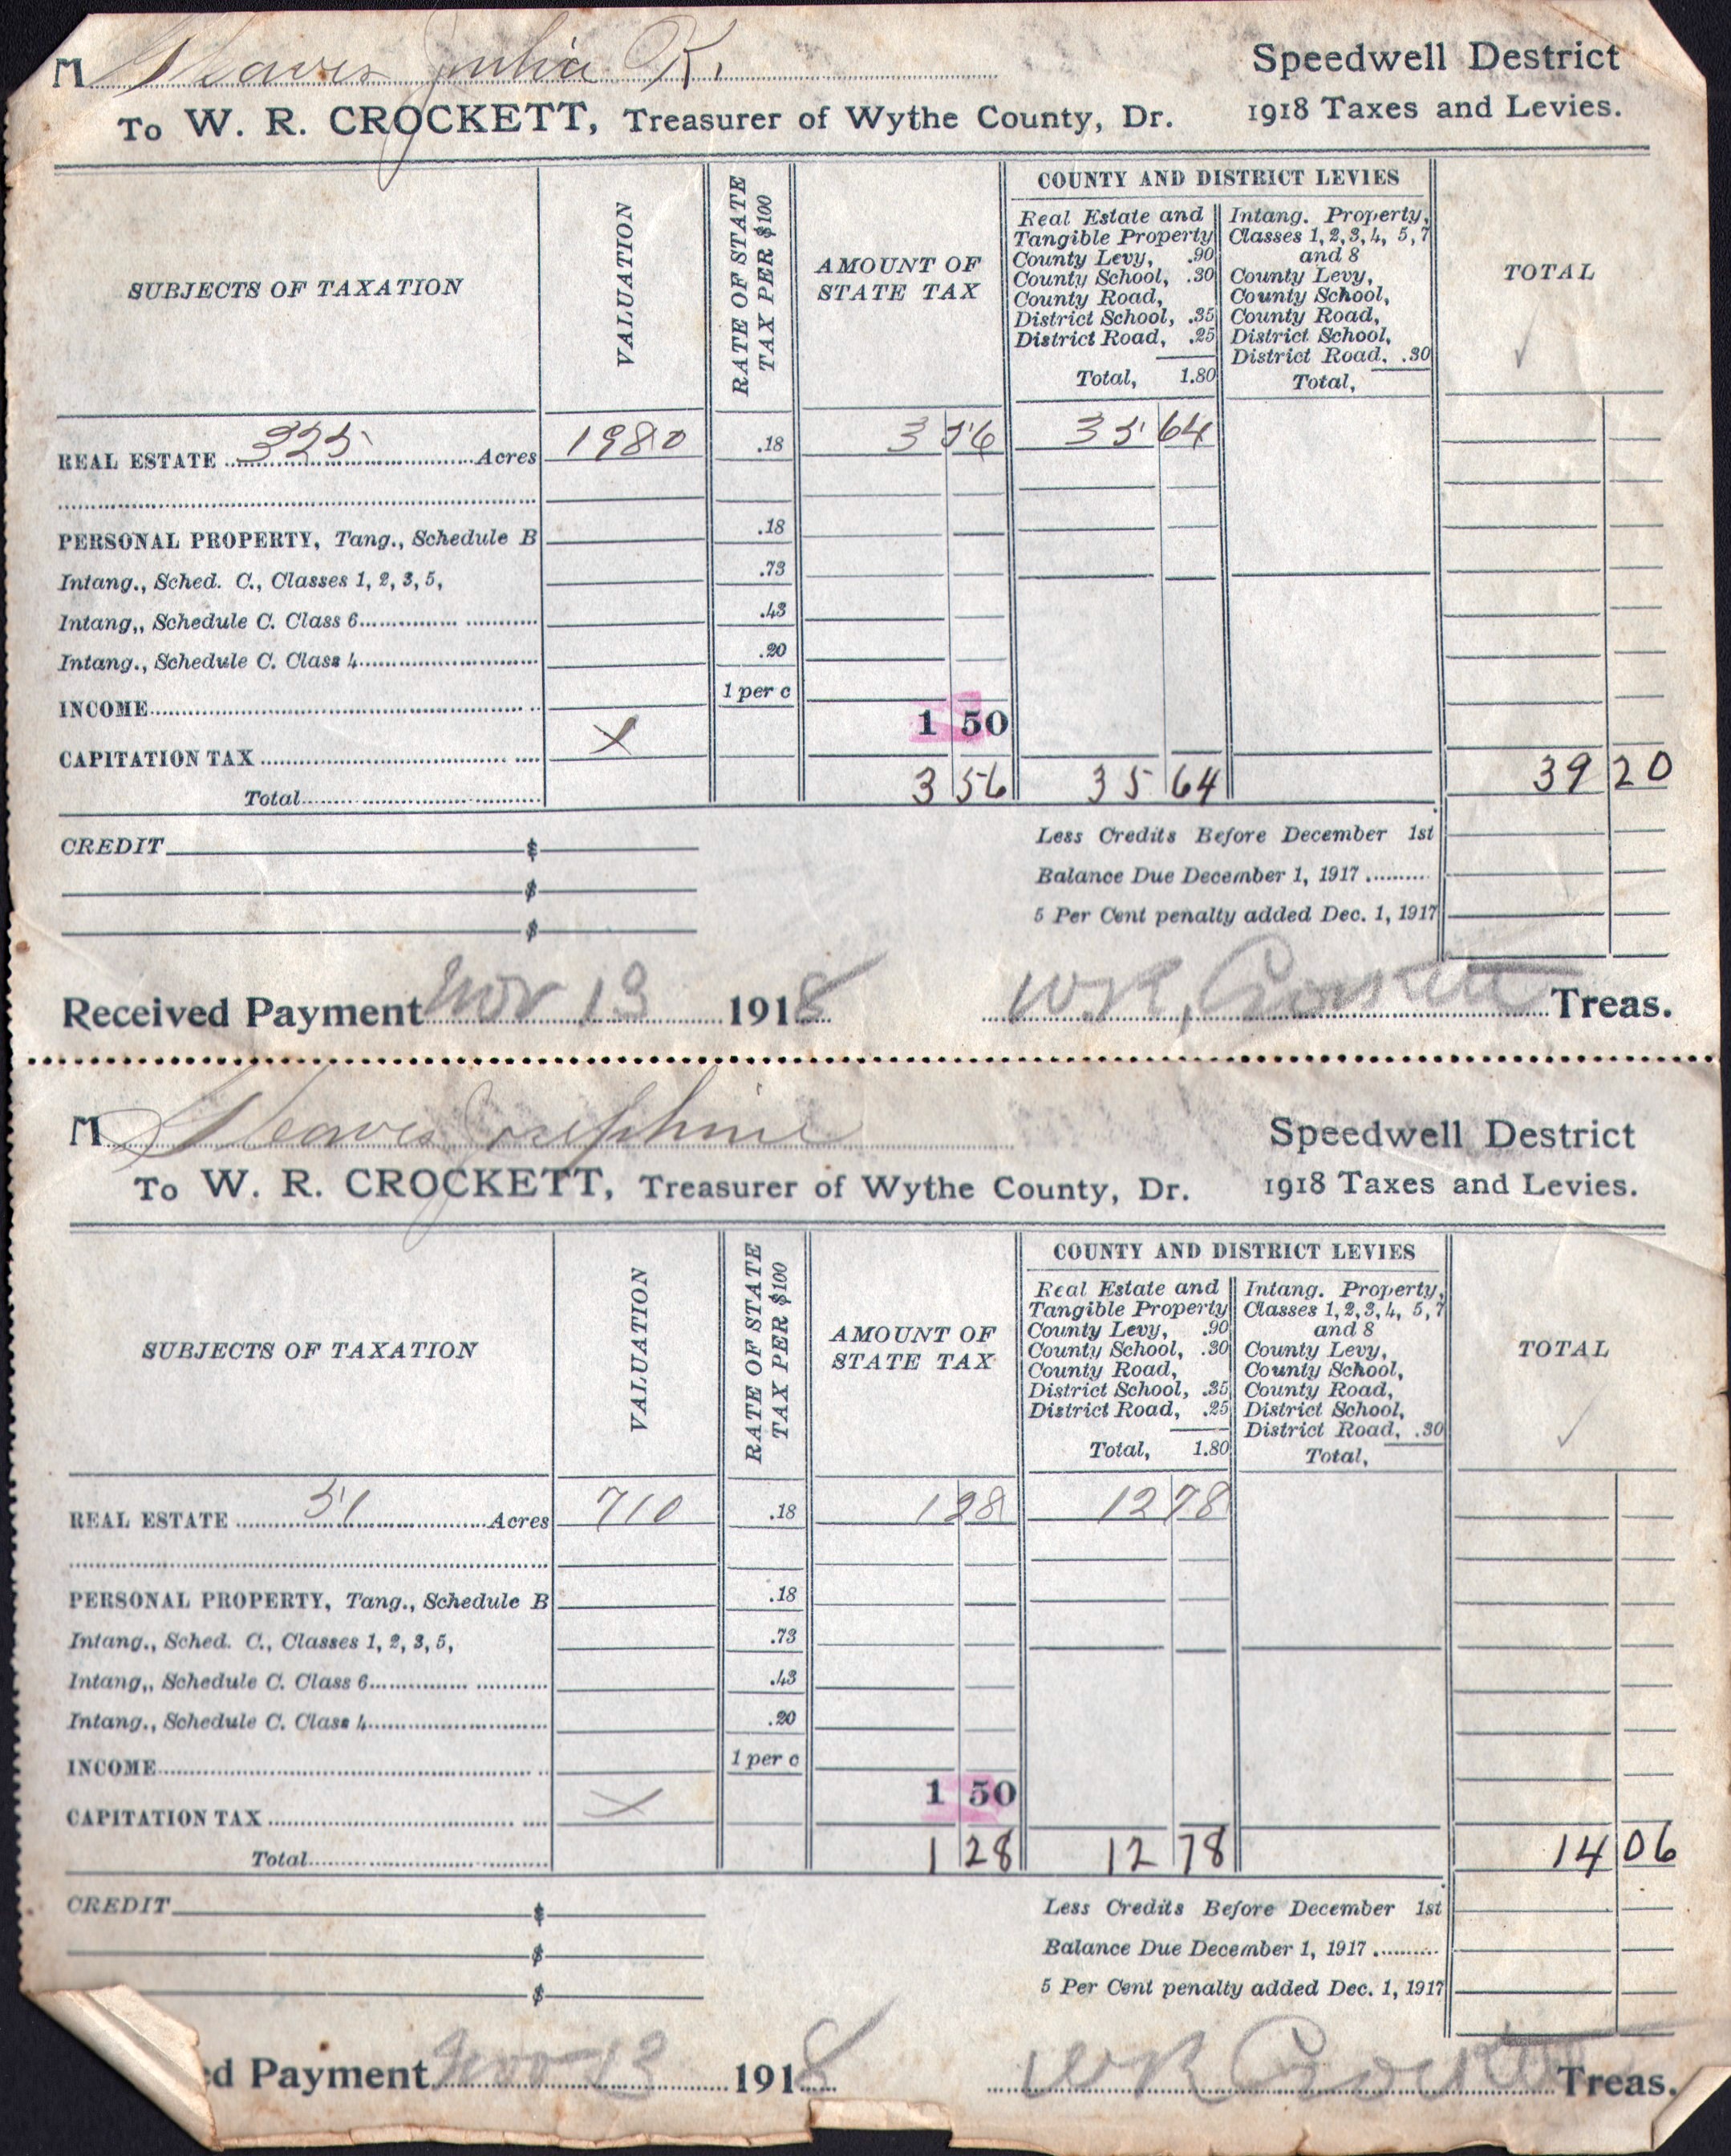 M Cleaves Julia K.
Speedwell Destrict
To W. R. CROCKETT, Treasurer of Wythe County, Dr.
1918 Taxes and Levies.
SUBJECTS OF TAXATION
VALUATION
RATE OF STATE TAX PER $100
AMOUNT OF STATE TAX
COUNTY AND DISTRICT LEVIES
Real Estate and
Tangible Property
County Levy, .90
County School, .30
County Road,
District School, .35
District Road, .25
Total, 1.80
Intang. Property,
Classes 1, 2, 3, 4, 5, 7
and 8
County Levy,
County School,
County Road,
District School,
District Road, .30
Total,
TOTAL
REAL ESTATE 325 Acres 1980 .18 3 56 35 64
PERSONAL PROPERTY, Tang., Schedule B .18
Intang., Sched. C., Classes 1, 2, 3, 5, .73
Intang,, Schedule C. Class 6 .43
Intang., Schedule C. Class 4 .20
INCOME 1 per c
CAPITATION TAX X 1 50
Total 3 56 35 64 39 20
CREDIT $
$
$
Less Credits Before December 1st
Balance Due December 1, 1917
5 Per Cent penalty added Dec. 1, 1917
Received Payment Nov 13 1918 W. R. Crockett Treas.
M Cleaves Josephine
Speedwell Destrict
To W. R. CROCKETT, Treasurer of Wythe County, Dr.
1918 Taxes and Levies.
SUBJECTS OF TAXATION
VALUATION
RATE OF STATE TAX PER $100
AMOUNT OF STATE TAX
COUNTY AND DISTRICT LEVIES
Real Estate and
Tangible Property
County Levy, .90
County School, .30
County Road,
District School, .35
District Road, .25
Total, 1.80
Intang. Property,
Classes 1, 2, 3, 4, 5, 7
and 8
County Levy,
County School,
County Road,
District School,
District Road, .30
Total,
TOTAL
REAL ESTATE 51 Acres 710 .18 1 28 12 78
PERSONAL PROPERTY, Tang., Schedule B .18
Intang., Sched. C., Classes 1, 2, 3, 5, .73
Intang,, Schedule C. Class 6 .43
Intang., Schedule C. Class 4 .20
INCOME 1 per c
CAPITATION TAX X 1 50
Total 1 28 12 78 14 06
CREDIT $
$
$
Less Credits Before December 1st
Balance Due December 1, 1917
5 Per Cent penalty added Dec. 1, 1917
ed Payment Nov 13 1918 W R Crockett Treas.